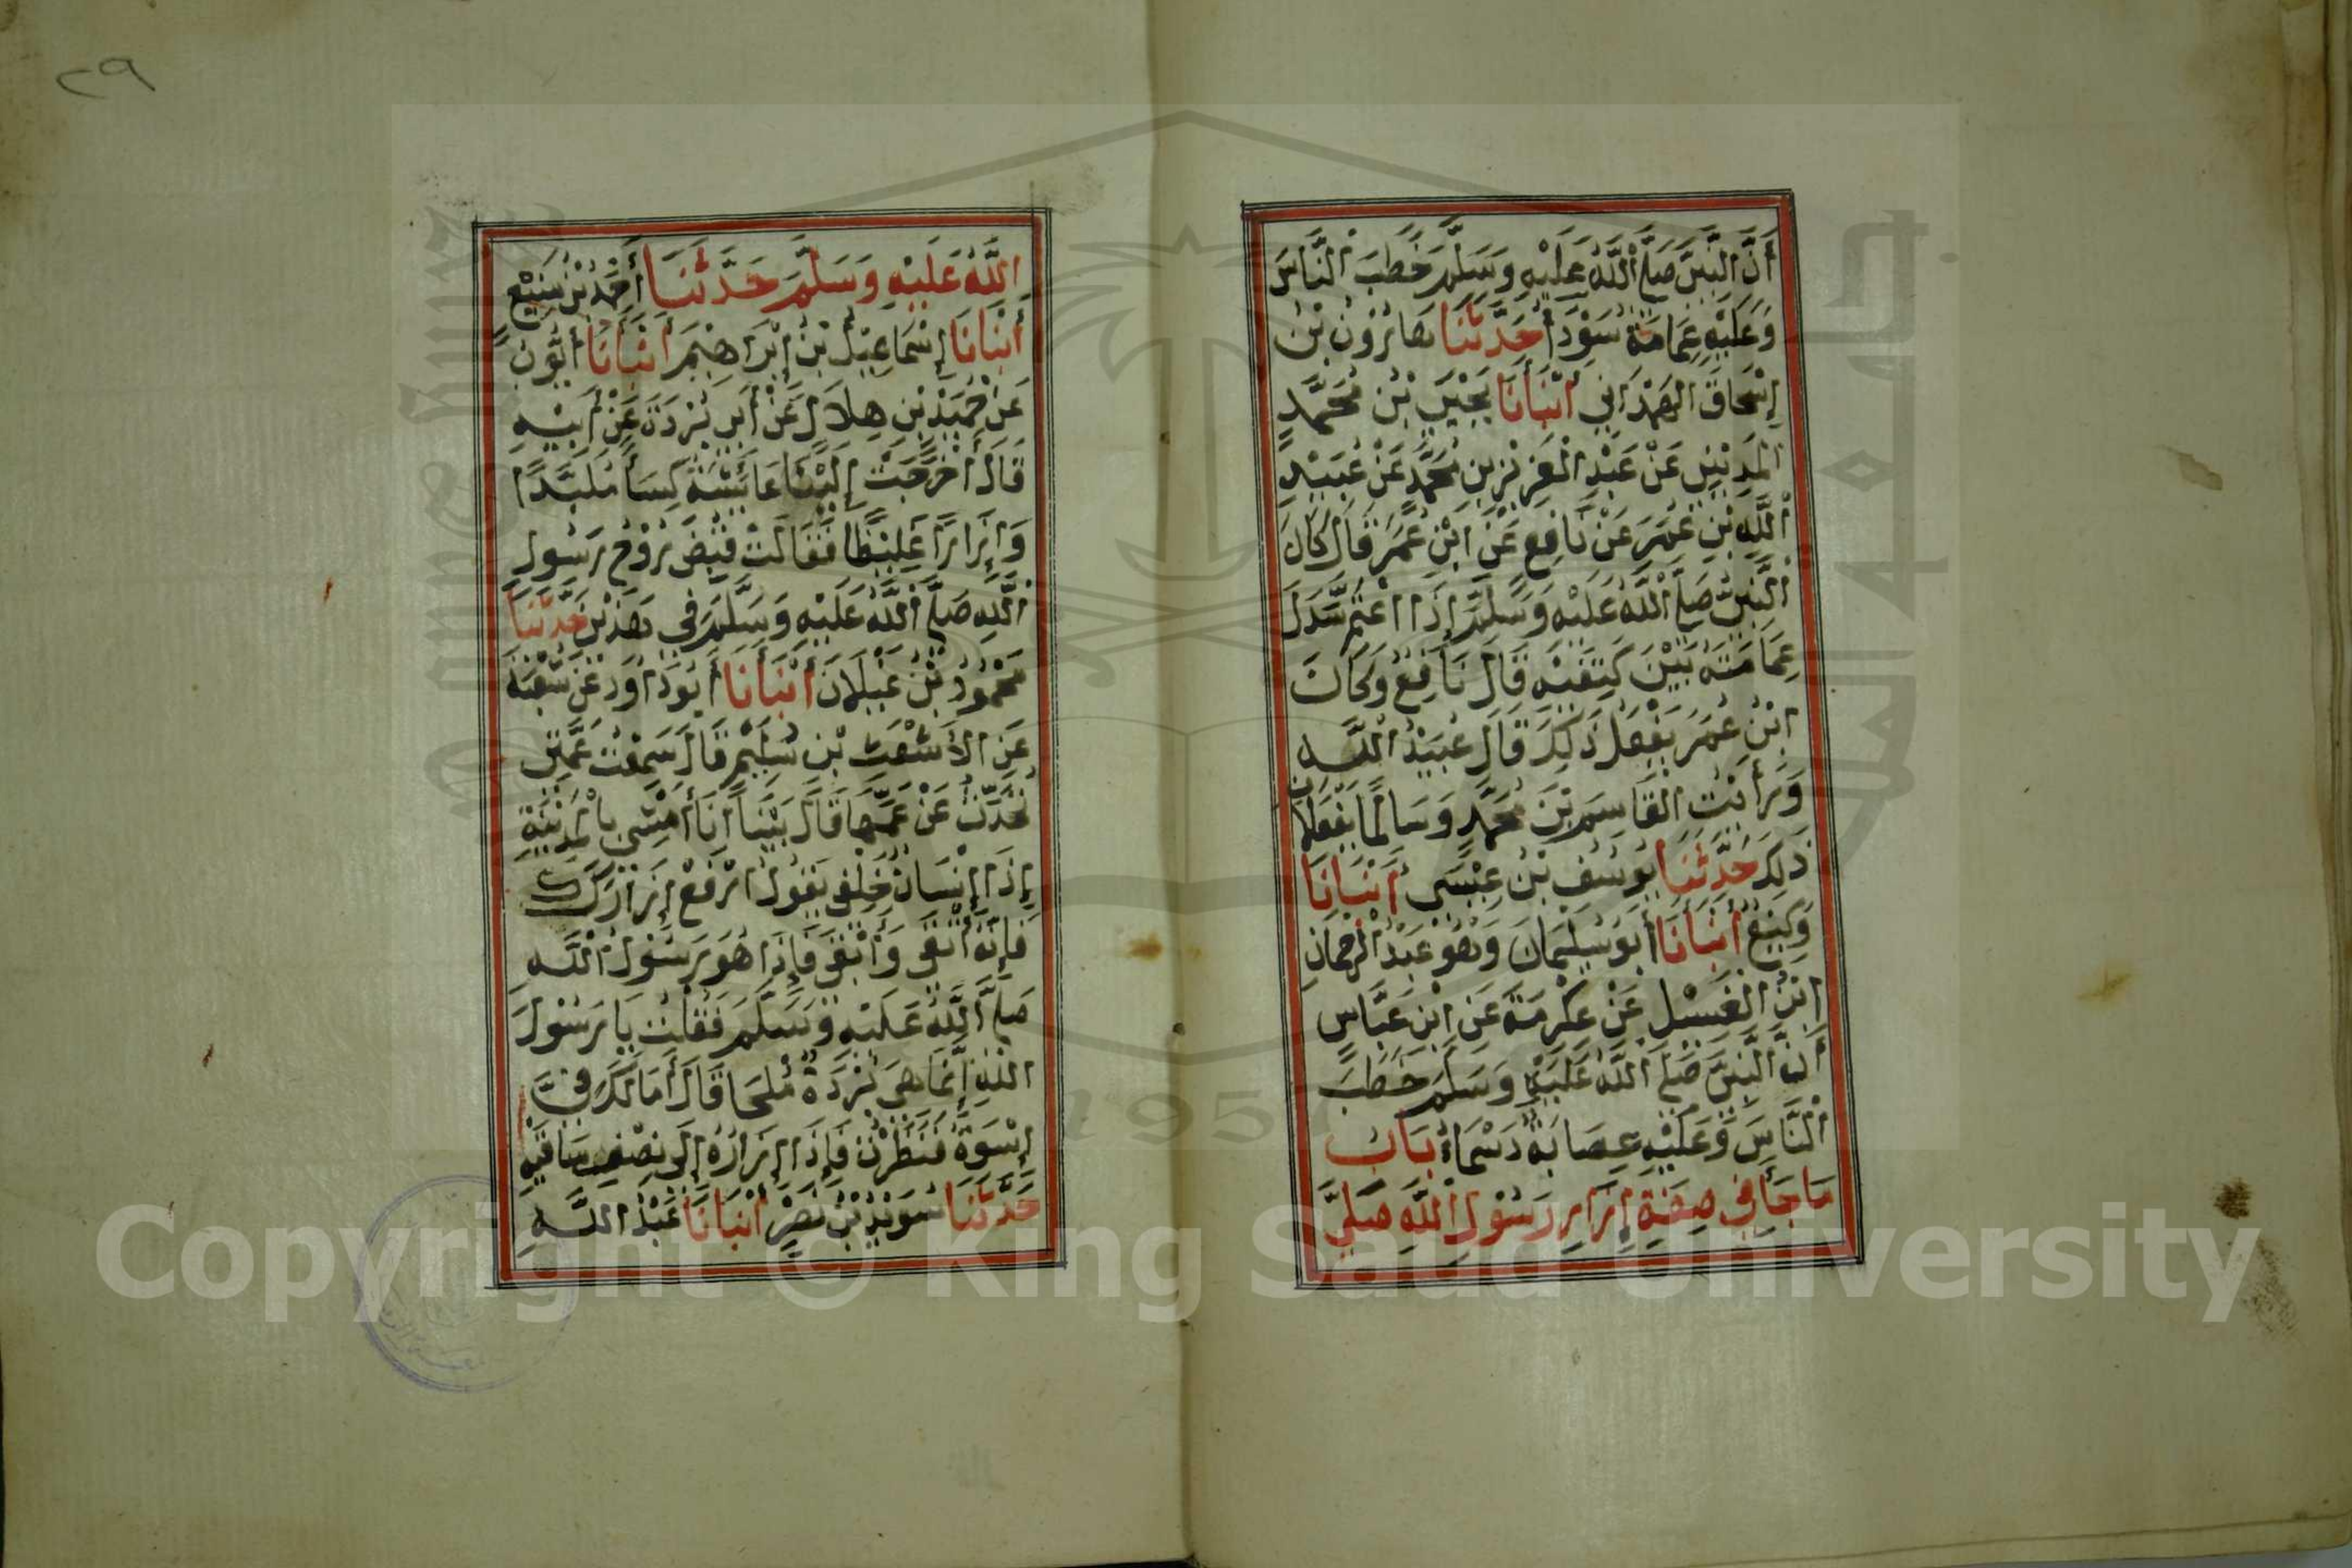 أَنَّ النَّبِيَّ صَلَّى اللَّهُ عَلَيْهِ وَسَلَّمَ خَطَبَ النَّاسَ
وَعَلَيْهِ عِمَامَةٌ سَوْدَأُ حَدَّثَنَا هَارُونُ بْنُ
إِسْحَاقَ الهَمْدَانِي أَنْبَأَنَا يَحْيَى بْنُ مُحَمَّدٍ
المَدِينِيِّ عَنْ عَبْدِ الْعَزِيزِ بْنِ مُحَمَّدٍ عَنْ عُبَيْدِ
اللَّهِ بْنِ عُمَرَ عَنْ نَافِعٍ عَنْ ابْنِ عُمَرَ قَالَ كَانَ
النَّبِيُّ صَلَّى اللَّهُ عَلَيْهِ وَسَلَّمَ إِذَا اعْتَمَّ سَدَلَ
عِمَامَتَهُ بَيْنَ كَتِفَيْهِ قَالَ نَافِعٌ وَكَانَ
ابْنُ عُمَرَ يَفْعَلُ ذَلِكَ قَالَ عُبَيْدُ اللَّهِ
وَرَأَيْتُ القَاسِمَ بْنَ مُحَمَّدٍ وَسَالِمًا يَفْعَلَانِ
ذَلِكَ حَدَّثَنَا يُوسُفُ بْنُ عِيْسَى أَنْبَأَنَا
وَكِيْعٌ أَنْبَأَنَا أَبُو سُلَيْمَانَ وَهُوَ عَبْدُ الرَّحْمَانِ
ابْنُ الْغَسِيْلِ عَنْ عِكْرِمَةَ عَنِ ابْنِ عَبَّاسٍ
أَنَّ النَّبِيَّ صَلَّى اللَّهُ عَلَيْهِ وَسَلَّمَ خَطَبَ
النَّاسَ وَعَلَيْهِ عِصَابَةٌ دَسْمَاءُ بَابُ
مَا جَأَ فِي صِفَةِ إِزَارِ رَسُولِ اللَّهِ صَلَّى
٢٩
اللَّهُ عَلَيْهِ وَسَلَّمَ حَدَّثَنَا أَحْمَدُ بْنُ مَنِيْعٍ
أَنْبَأَنَا إِسْمَاعِيْلُ بْنُ إِبْرَاهِيْمَ أَنْبَأَنَا أَيُّوبُ
عَنْ حُمَيْدِ بْنِ هِلَالٍ عَنْ أَبِي بُرْدَةَ عَنْ أَبِيْهِ
قَالَ أَخْرَجَتْ إِلَيْنَا عَائِشَةُ كِسَأً مُلَبَّدًا
وَإِزَارًا غَلِيْظًا فَقَالَتْ قُبِضَ رُوْحُ رَسُولِ
اللَّهِ صَلَّى اللَّهُ عَلَيْهِ وَسَلَّمَ فِي هَذَيْنِ حَدَّثَنَا
مَحْمُودُ بْنُ غَيْلَانَ أَنْبَأَنَا أَبُو دَاوُدَ عَنْ شُعْبَةَ
عَنِ الأَشْعَثِ بْنِ سُلَيْمٍ قَالَ سَمِعْتُ عَمَّتِي
تُحَدِّثُ عَنْ عَمِّهَا قَالَ بَيْنَا أَنَا أَمْشِي بِالْمَدِيْنَةِ
إِذَا إِنْسَانٌ خَلْفِي يَقُولُ ارْفَعْ إِزَارَكَ
فَإِنَّهُ أَتْقَى وَأَبْقَى فَإِذَا هُوَ رَسُوْلُ اللَّهِ
صَلَّى اللَّهُ عَلَيْهِ وَسَلَّمَ فَقُلْتُ يَا رَسُوْلَ
اللَّهِ إِنَّمَا هِيَ بُرْدَةٌ مَلْحَا قَالَ أَمَا لَكَ فِيَّ
إِسْوَةٌ فَنَظَرْتُ فَإِذَا إِزَارُهُ إِلَى نِصْفِ سَاقَيْهِ
حَدَّثَنَا سُوَيْدُ بْنُ نَصْرٍ أَنْبَأَنَا عَبْدُ اللَّهِ
1957
Copyright © King Saud University